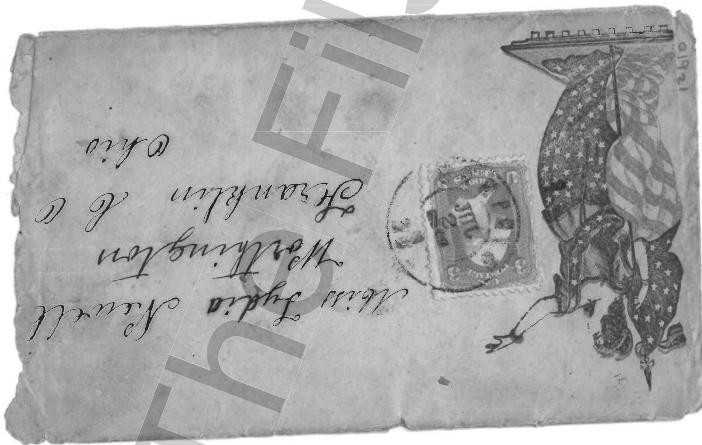 Miss Lydia Newell
Worthington
Franklin Co
Ohio
The Fil